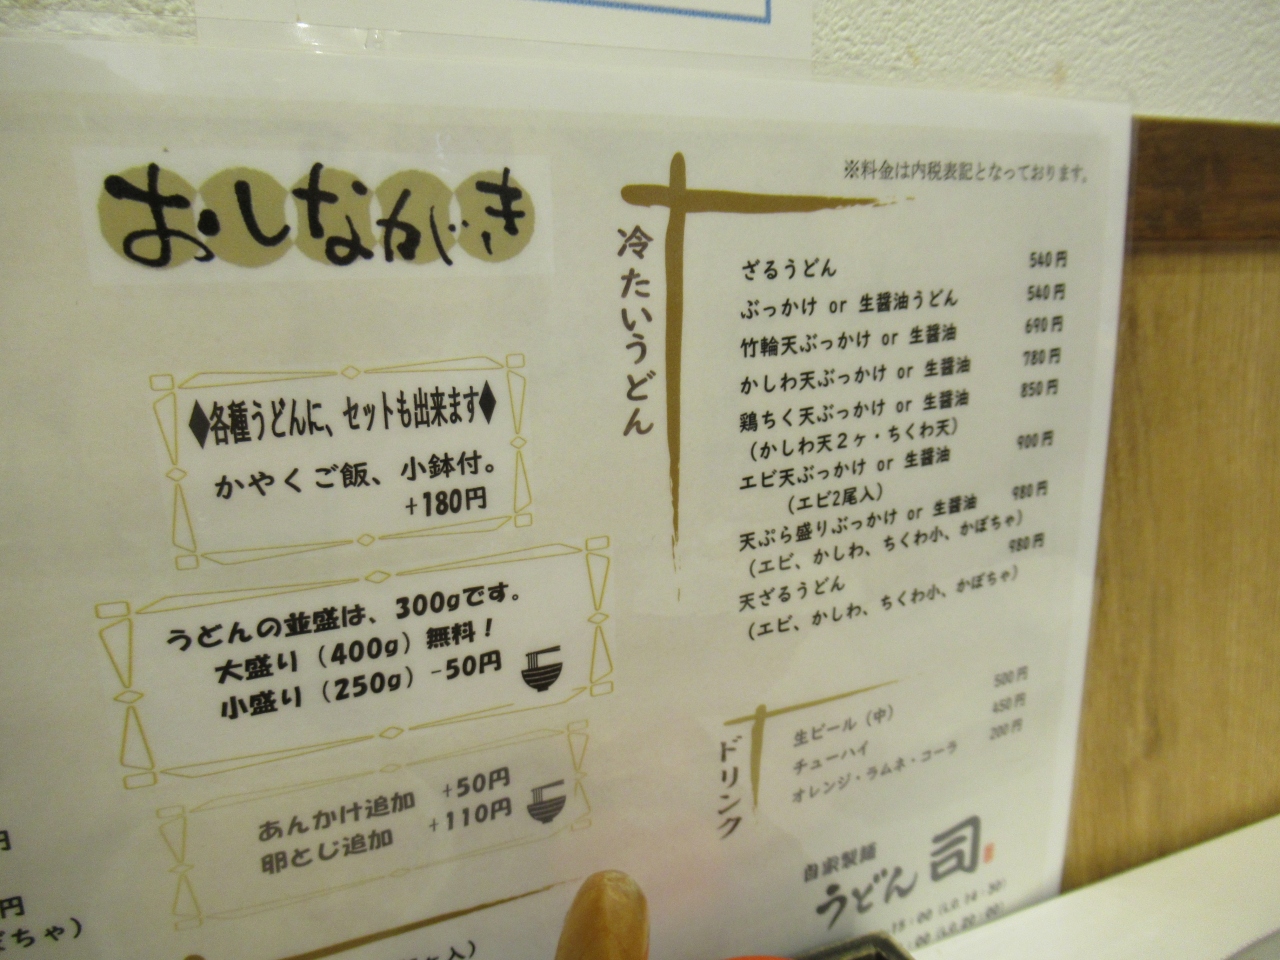 おしながき
◆各種うどんに、セットも出来ます◆
かやくご飯、小鉢付。
+180円
うどんの並盛は、300gです。
大盛り（400g）無料！
小盛り（250g）-50円
あんかけ追加 +50円
卵とじ追加 +110円
※料金は内税表記となっております。
冷たいうどん
ざるうどん 540円
ぶっかけ or 生醤油うどん 540円
竹輪天ぶっかけ or 生醤油 690円
かしわ天ぶっかけ or 生醤油 780円
鶏ちく天ぶっかけ or 生醤油 850円
（かしわ天２ヶ・ちくわ天）
エビ天ぶっかけ or 生醤油 900円
（エビ2尾入）
天ぷら盛りぶっかけ or 生醤油 980円
（エビ、かしわ、ちくわ小、かぼちゃ）
天ざるうどん 980円
（エビ、かしわ、ちくわ小、かぼちゃ）
ドリンク
生ビール（中） 500円
チューハイ 450円
オレンジ・ラムネ・コーラ 200円
自家製麺
うどん 司
15：00（LO.14：30）
：00（LO.20：00）
円
円
ちゃ）
入）